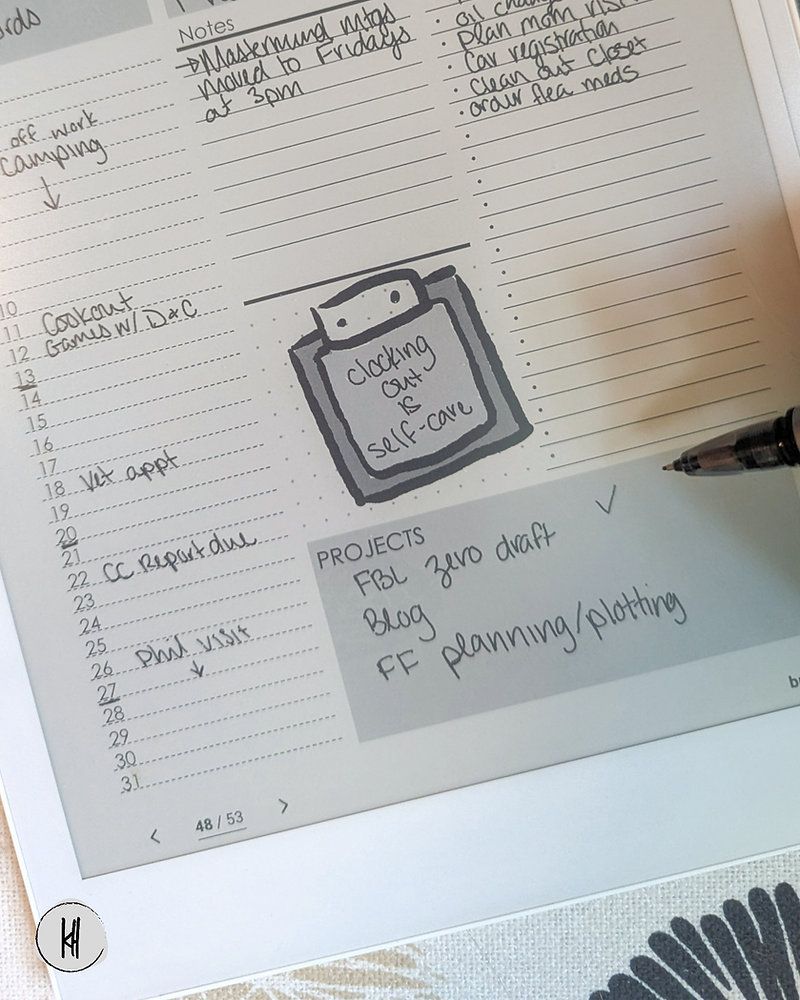 Notes
→Mastermind mtgs
moved to Fridays
at 3pm
• plan mom visit
• Car registration
• clean out closet
• order flea meds
off work
Camping
↓
10
11 Cookout
12 Games w/ D&C
13
14
15
16
17
18 Vet appt
19
20
21
22 CC Report due
23
24
25
26 Phil visit
27 ↓
28
29
30
31
clocking
out
is
self-care
PROJECTS
FBL zero draft ✓
Blog
FF planning/plotting
< 48 / 53 >
KH